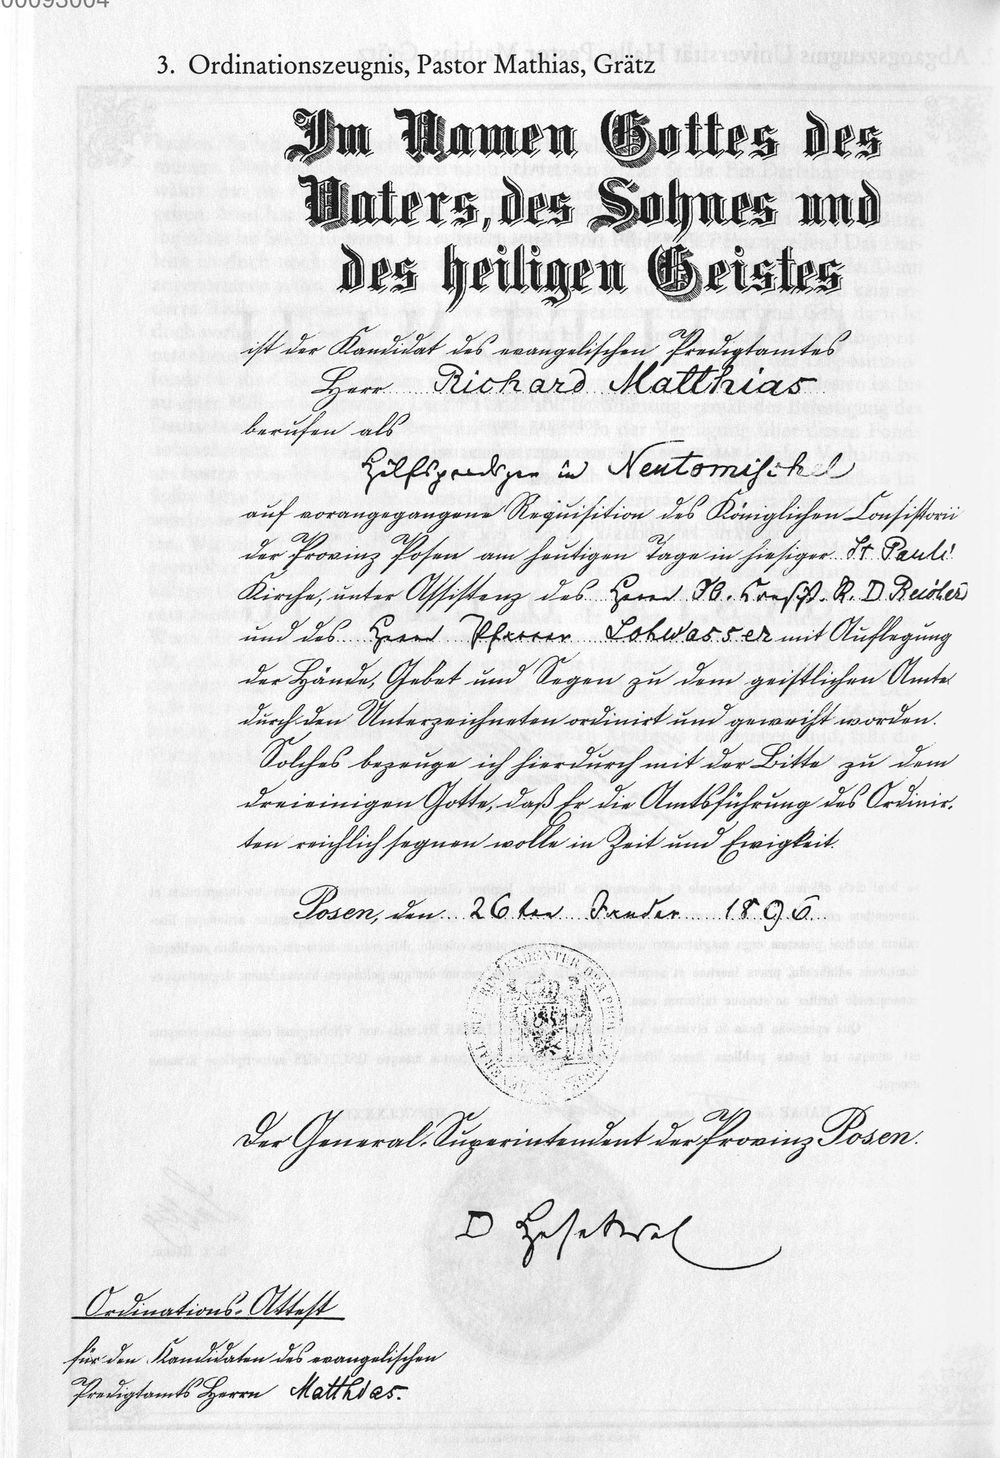 00093004
3. Ordinationszeugnis, Pastor Mathias, Grätz
Im Namen Gottes des
Vaters, des Sohnes und
des heiligen Geistes
ist der Kandidat des evangelischen Predigtamtes
Herr Richard Matthias
berufen als
Hilfsprediger in Neutomischel
auf vorangegangene Requisition des Königlichen Consistorii
der Provinz Posen am heutigen Tage in hiesiger St Pauli
Kirche, unter Assistenz des Herrn R. D Reichard
und des Herrn Pfarrer Lohwasser mit Auflegung
der Hände, Gebet und Segen zu dem geistlichen Amte
durch den Unterzeichneten ordinirt und geweiht worden.
Solches bezeuge ich hierdurch mit der Bitte zu dem
dreieinigen Gotte, daß Er die Amtsführung des Ordinir-
ten reichlich segnen wolle in Zeit und Ewigkeit.
Posen, den 26ten Januar 1896
Der General-Superintendent der Provinz Posen.
D Hesekiel
Ordinations-Attest
für den Kandidaten des evangelischen
Predigtamts Herrn Matthias.